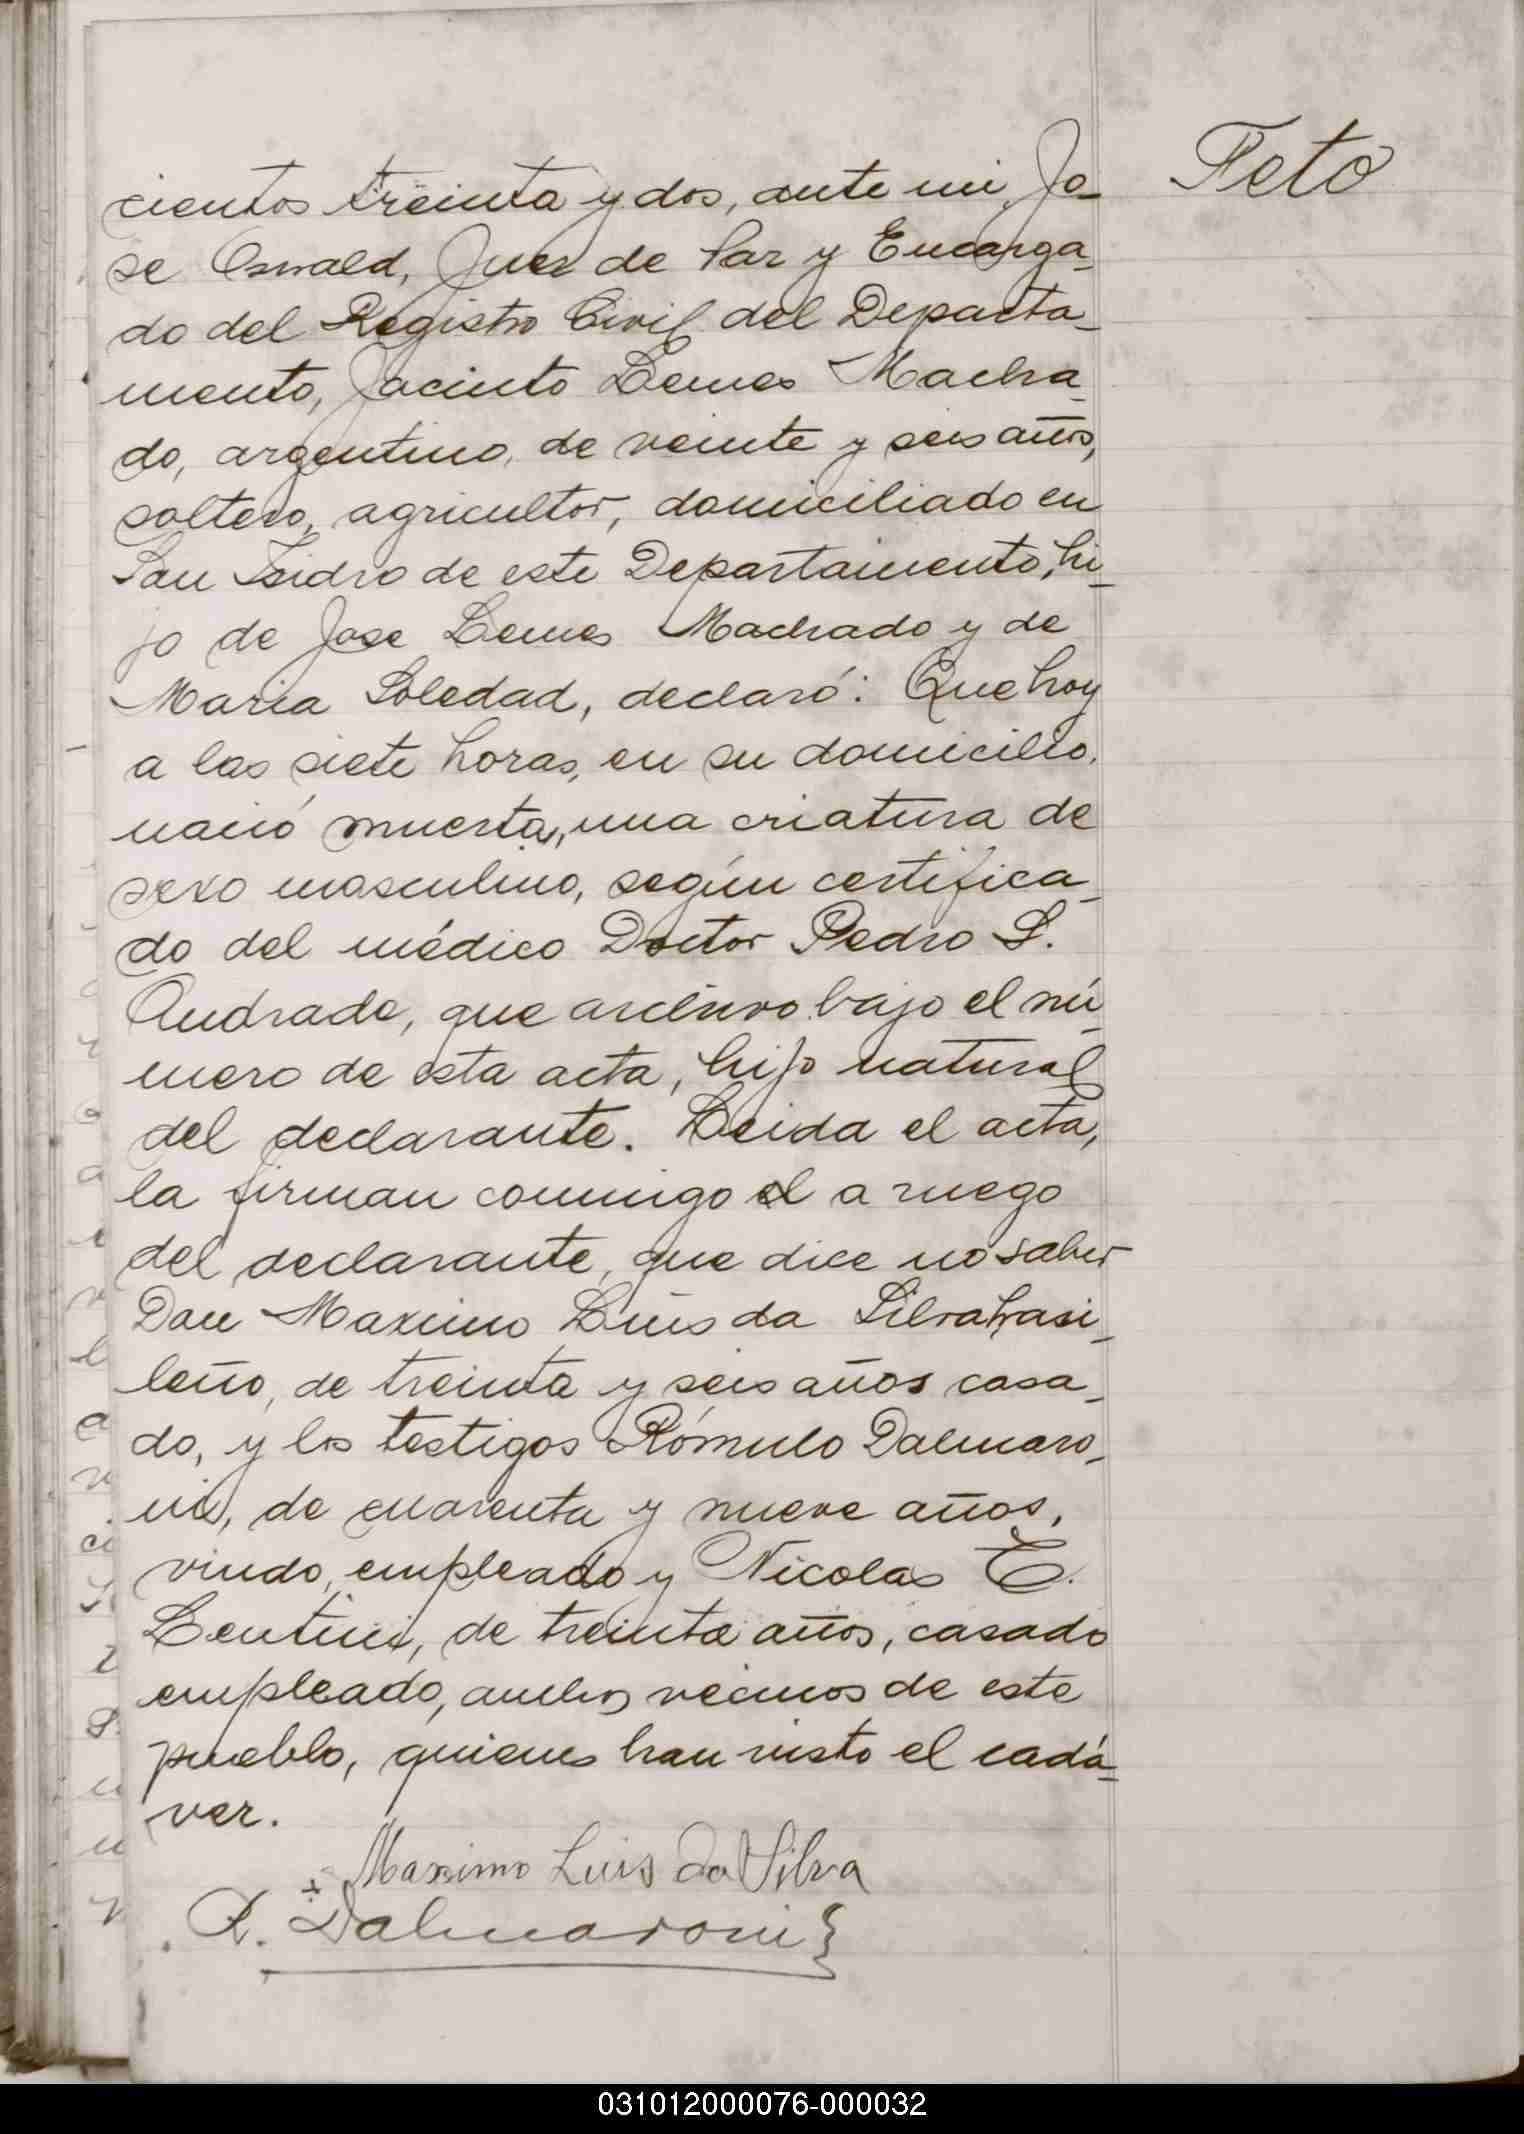 Feto
cientos treinta y dos, ante mi, Jo-
se Oswald, Juez de Paz y Encarga-
do del Registro Civil del Departa-
mento, Jacinto Lemes Macha-
do, argentino, de veinte y seis años,
soltero, agricultor, domiciliado en
San Isidro de este Departamento, hi-
jo de Jose Lemes Machado y de
Maria Soledad, declaró: Que hoy
a las siete horas, en su domicilio,
nació muerta, una criatura de
sexo masculino, según certifica-
do del médico Doctor Pedro S.
Andrade, que archivo bajo el nú-
mero de esta acta, hijo natural
del declarante. Leida el acta,
la firman conmigo el a ruego
del declarante, que dice no saber
Don Maximo Luis da Silva brasi-
leño, de treinta y seis años casa-
do, y los testigos Rómulo Dalmaro-
ni, de cuarenta y nueve años,
viudo, empleado y Nicolas C.
Lentini, de treinta años, casado
empleado, ambos vecinos de este
pueblo, quienes han visto el cadá-
ver.
Maximo Luis da Silva
R. Dalmaroni
031012000076-000032